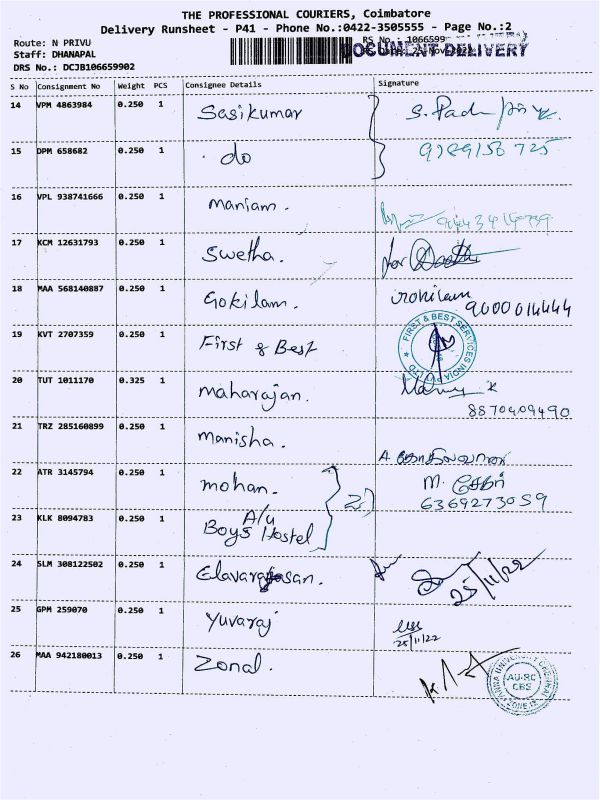 THE PROFESSIONAL COURIERS, Coimbatore
Delivery Runsheet - P41 - Phone No.:0422-3505555 - Page No.:2
Route: N PRIVU
RS No. 1066599
Staff: DHANAPAL
DOCUMENT DELIVERY
25-Nov
DRS No.: DCJB106659902
S No Consignment No Weight PCS Consignee Details Signature
14 VPM 4863984 0.250 1 Sasikumar
15 DPM 658682 0.250 1 do 9789156725
16 VPL 938741666 0.250 1 Maniam.
17 KCM 12631793 0.250 1 Swetha. for
18 MAA 568140887 0.250 1 Gokilam. 9000014444
19 KVT 2707359 0.250 1 First & Best FIRST & BEST SERVICES INDIA PVT LTD
20 TUT 1011170 0.325 1 Maharajan.
8870409490
21 TRZ 285160899 0.250 1 Manisha.
22 ATR 3145794 0.250 1 Mohan. 2) M. சேகர்
6369273059
23 KLK 8094783 0.250 1 A/u
Boys Hostel
24 SLM 308122502 0.250 1 Elavarasan. 25/11/22
25 GPM 259070 0.250 1 Yuvaraj
25/11/22
26 MAA 942180013 0.250 1 Zonal.
ANNA UNIVERSITY CHENNAI
AU-RC
CBS